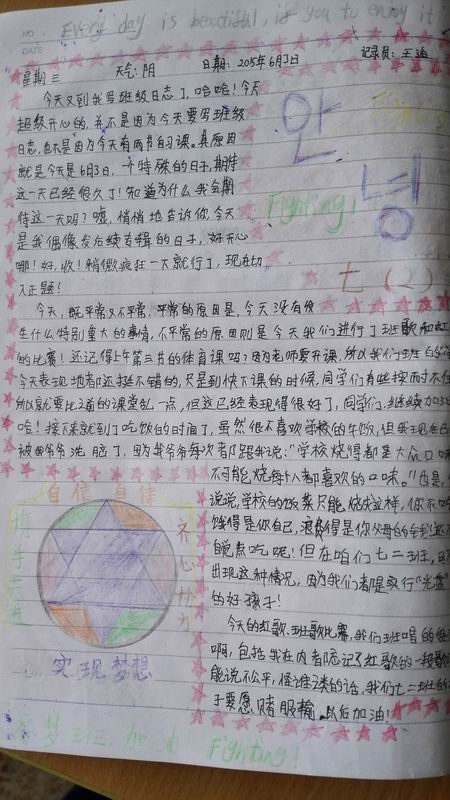 Every day is beautiful, if you to enjoy it
NO.
DATE
星期三 天气:阴 日期:2015年6月3日 记录员:王迪
今天又到我写班级日志了,哈哈!今天
超级开心的,并不是因为今天要写班级
日志,也不是因为今天有两节自习课。真原因
就是今天是6月3日,一个特殊的日子,期待
这一天已经很久了!知道为什么我会期
待这一天吗?嘘,悄悄地告诉你,今天
是我偶像发后续专辑的日子,好开心
哪!好,收!稍微疯狂一下就行了,现在切
入正题!
안
녕
Fighting!
七(2)
今天,既平常又不平常,平常的原因是,今天没有发
生什么特别重大的事情,不平常的原因则是今天我们进行了班歌和红
的比赛!还记得上午第三节的体育课吗?因为老师要开课,所以我们班
今天表现地都还挺不错的,只是到快下课的时候,同学们有些按耐不住
所以就要比之前的课堂乱一点,但这已经表现得很好了,同学们,继续加
哈!接下来就到了吃饭的时间了,虽然很不喜欢学校的午饭,但我现在已
被爷爷洗脑了,因为我爷爷每次都跟我说:“学校烧得都是大众口味
不可能烧每个人都喜欢的口味。”也是,
说说,学校的饭菜只能烧成这样,你不吃
饿得是你自己,浪费得是你父母的
自觉点吃呢!但在咱们七二班,
出现这种情况,因为我们都是实行“光盘”
的好孩子!
自信 自律
携手共进
齐心协力
实现梦想
今天的红歌、班歌比赛,我们班唱的
啊,包括我在内者忘记了红歌的一段歌
能说不公平,怪谁之类的话,我们七二班的
子要愿赌服输。以后加油!
Fighting!